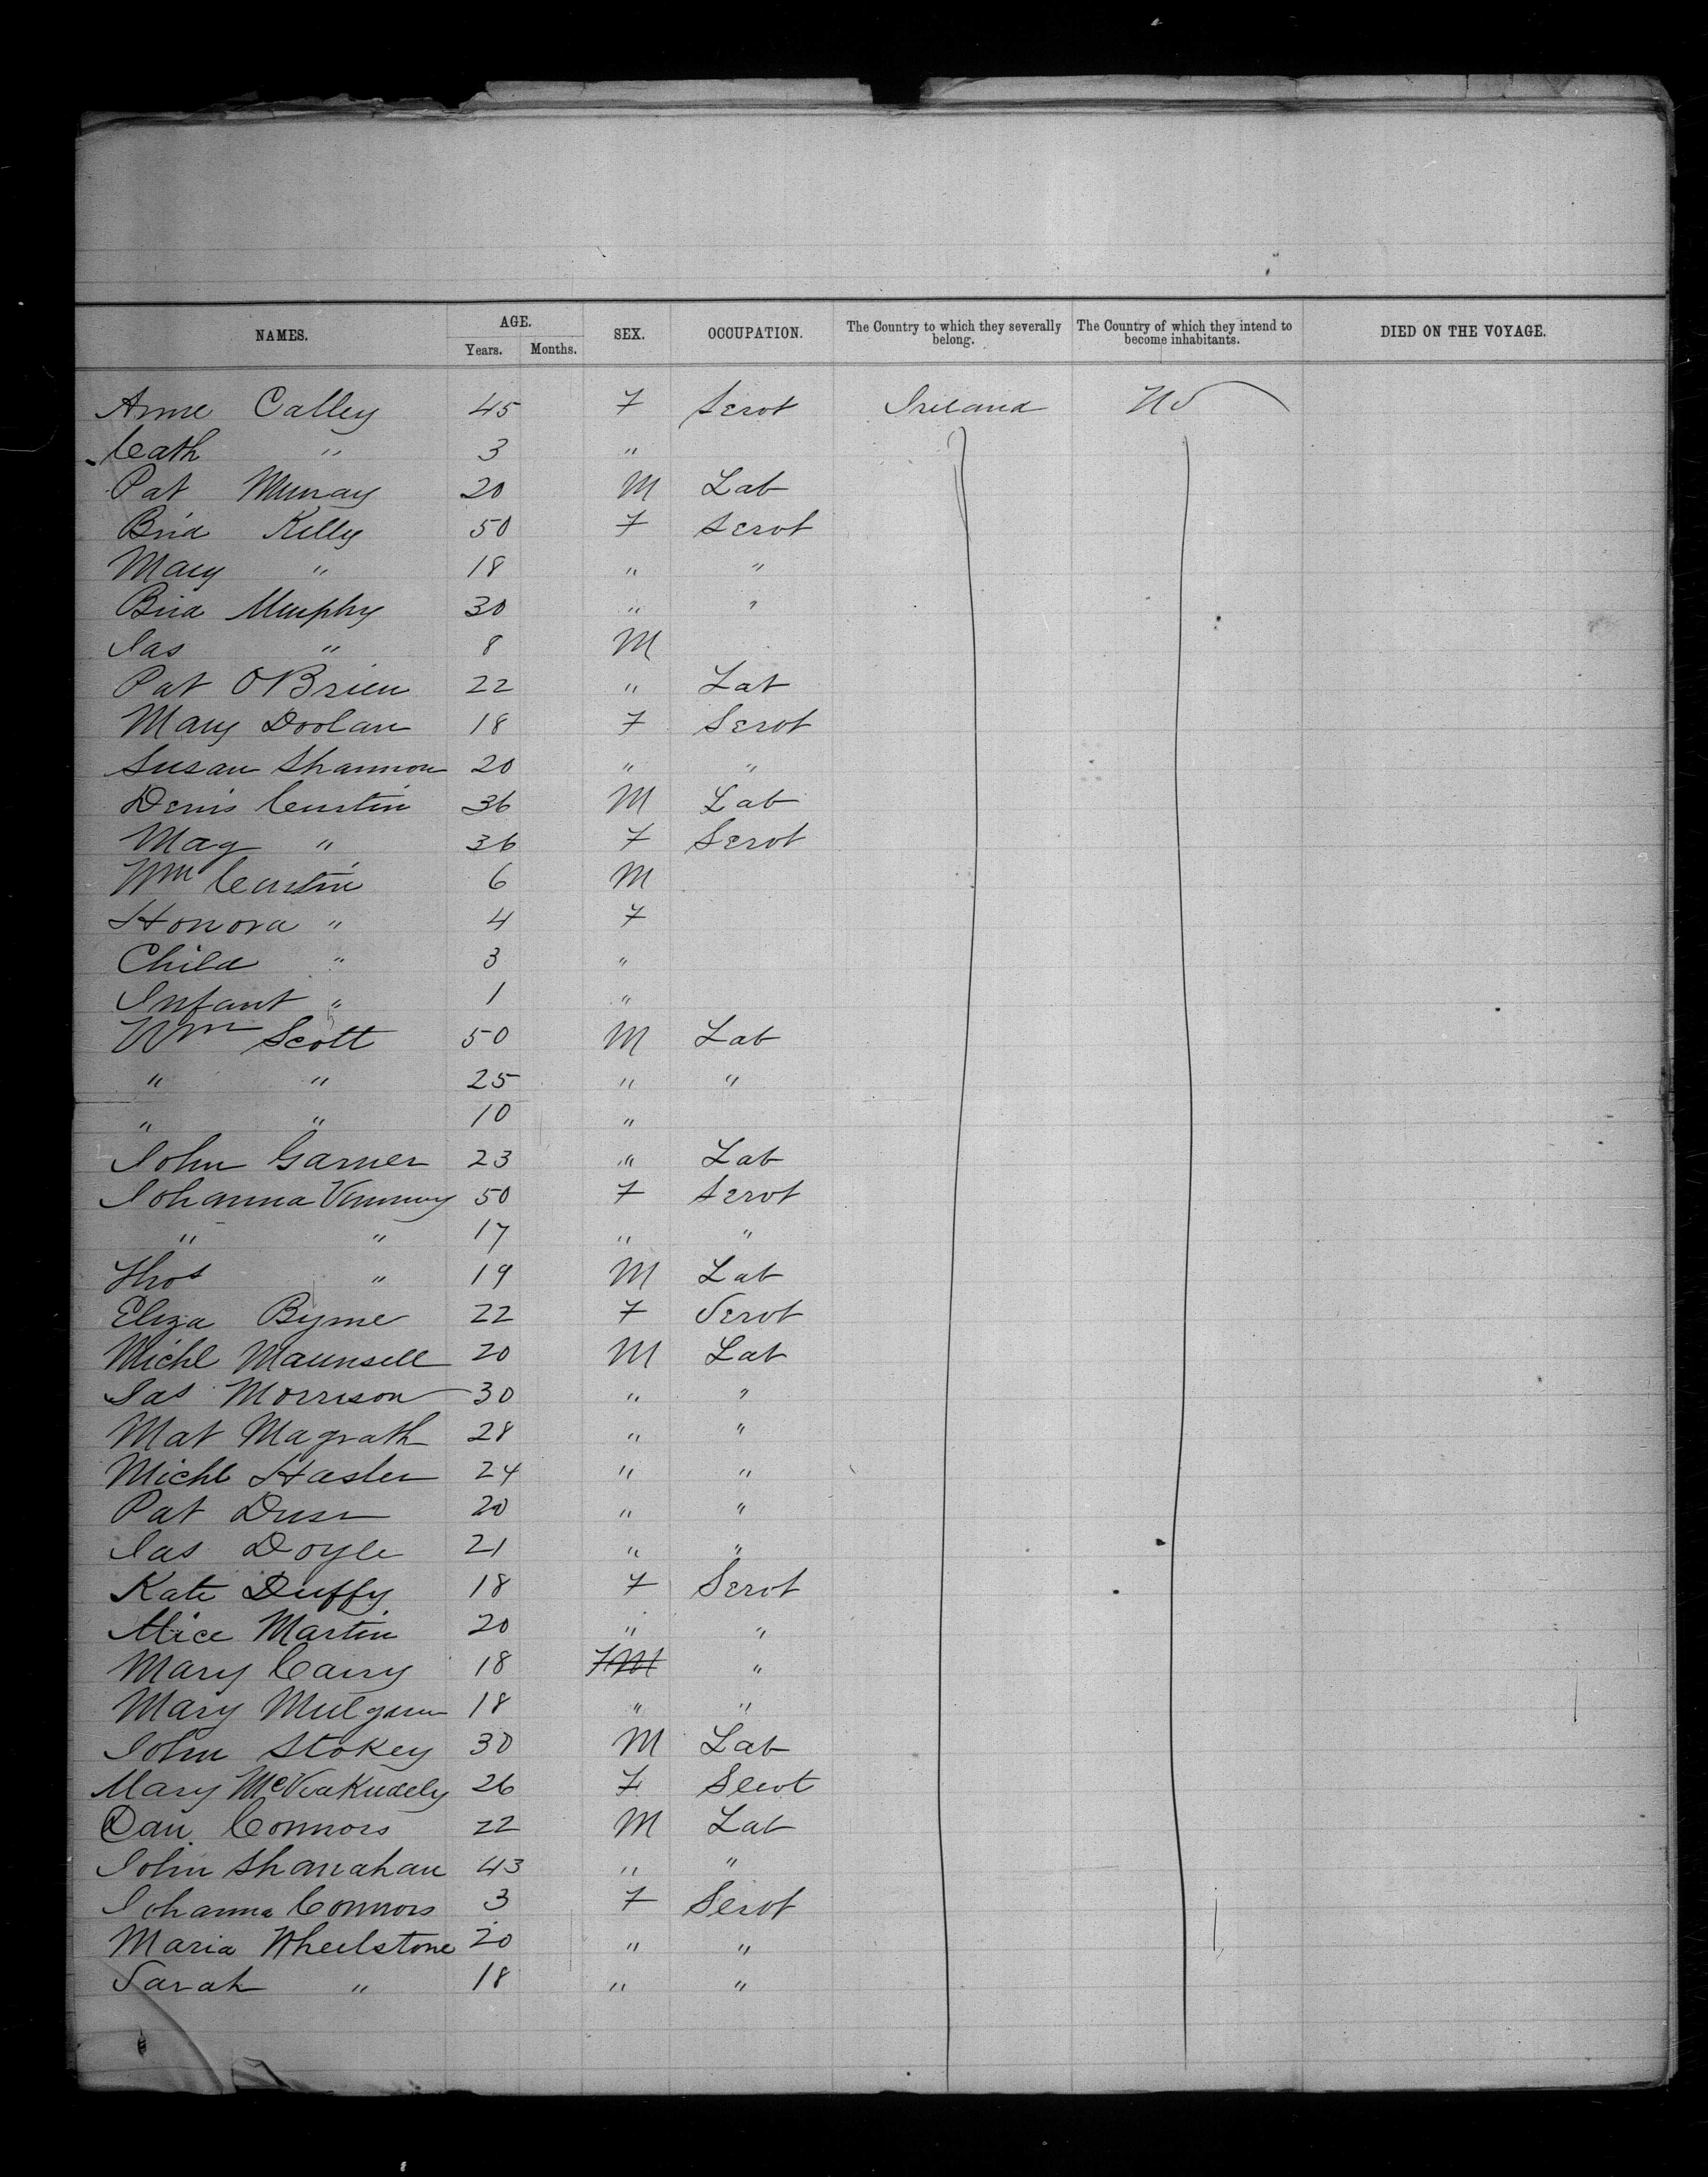 NAMES. AGE. SEX. OCCUPATION. The Country to which they severally belong. The Country of which they intend to become inhabitants. DIED ON THE VOYAGE.
Years. Months.
Anne Calley 45 F Servt Ireland US
Cath " 3 "
Pat Murray 20 M Lab
Brid Kelly 50 F Servt
Mary " 18 " "
Brid Murphy 30 " "
Jas " 8 M
Pat O'Brien 22 " Lab
Mary Doolan 18 F Servt
Susan Shannon 20 " "
Denis Curtin 36 M Lab
Mag " 36 F Servt
Wm Curtin 6 M
Honora " 4 F
Child " 3 "
Infant " 1 "
Wm Scott 50 M Lab
" " 25 " "
" " 10 "
John Garner 23 " Lab
Johanna 50 F Servt
" " 17 " "
Thos " 19 M Lab
Eliza Byrne 22 F Servt
Michl Maunsell 20 M Lab
Jas Morrison 30 " "
Mat Magrath 28 " "
Michl Hasler 24 " "
Pat 20 " "
Jas Doyle 21 " "
Kate Duffy 18 F Servt
Alice Martin 20 " "
Mary Carry 18 F M "
Mary 18 " "
John Stokey 30 M Lab
Mary 26 F Servt
Dan Connors 22 M Lab
John Shanahan 43 " "
Johanna Connors 3 F Servt
Maria Wheelstone 20 " "
Sarah " 18 " "